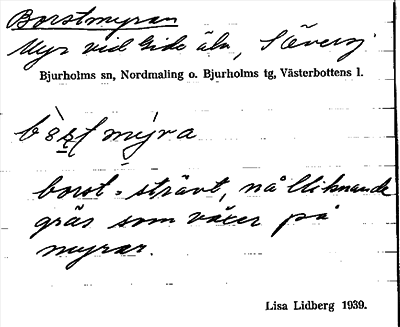 Borstmyran
Myr vid Gide älv,
Bjurholms sn, Nordmaling o. Bjurholms tg, Västerbottens l.
borst = strävt, nålliknande
gräs som växer på
myrar.
Lisa Lidberg 1939.